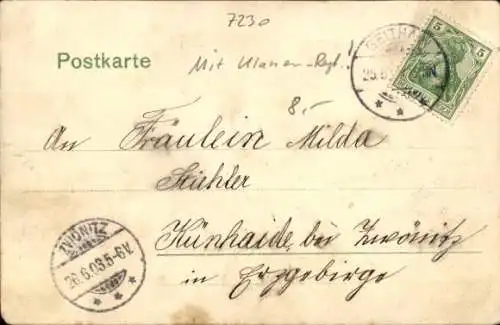 7230
Postkarte
Mit Ulanen-Regt.!
8.-
5 5
GEITHA
25.6.
An Fräulein Milda
Stichler
Kühnhaide bei Zwönitz
in Erzgebirge
ZWÖNITZ
26.6.03.5-6V.